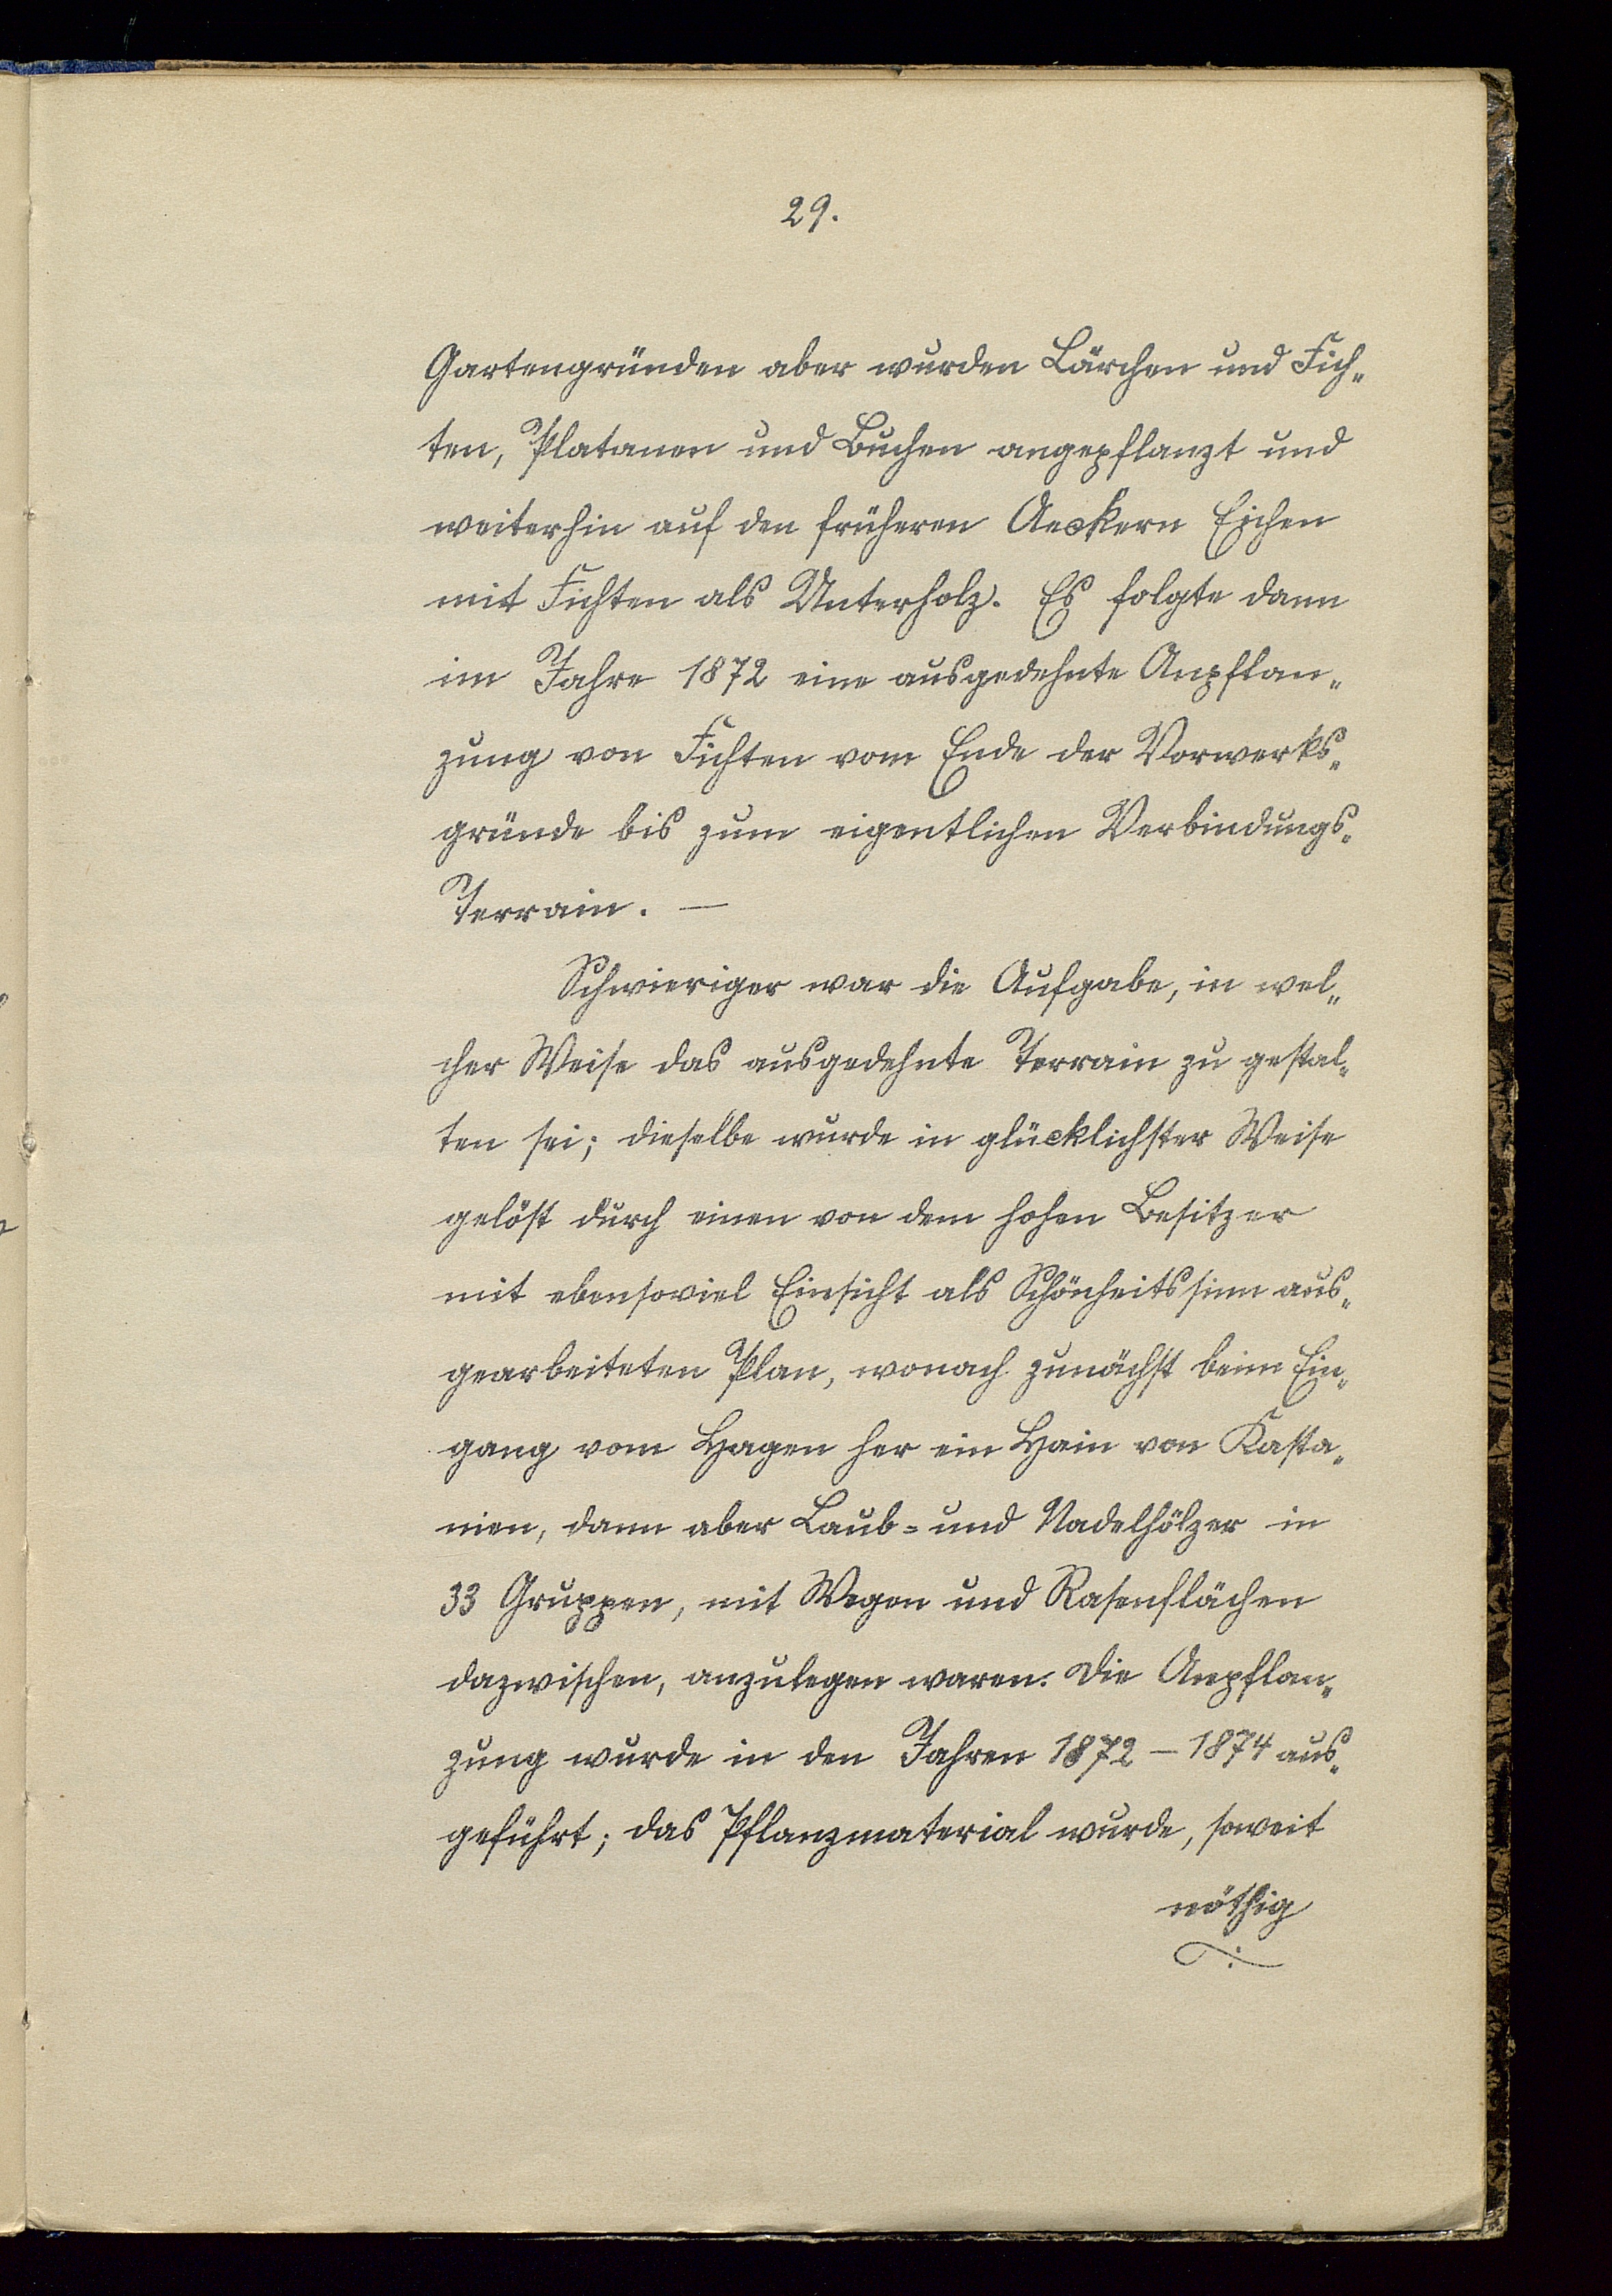 29.
Gartengründen aber wurden Lärchen und Fich„
ten, Platanen und Buchen angepflanzt und
weiterhin auf den früheren Aeckern Eichen
mit Fichten als Unterholz. Es folgte dann
im Jahre 1872 eine ausgedehnte Anpflan„
zung von Fichten vom Ende der Vorwerks„
gründe bis zum eigentlichen Verbindungs„
Terrain. —
Schwieriger war die Aufgabe, in wel„
cher Weise das ausgedehnte Terrain zu gestal„
ten sei; dieselbe wurde in glücklichster Weise
gelöst durch einen von dem hohen Besitzer
mit ebensoviel Einsicht als Schönheitssinn aus„
gearbeiteten Plan, wonach zunächst beim Ein„
gang vom Hagen her ein Hain von Kasta„
nien, dann aber Laub= und Nadelhölzer in
33 Gruppen, mit Wegen und Rasenflächen
dazwischen, anzulegen waren. Die Anpflan„
zung wurde in den Jahren 1872 – 1874 aus„
geführt; das Pflanzmaterial wurde, soweit
nöthig